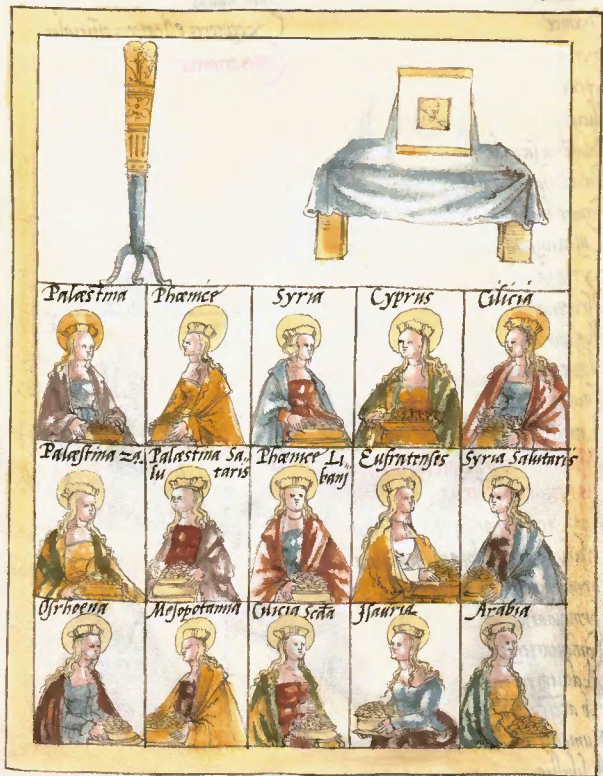 Palæstina
Phœnice
Syria
Cyprus
Cilicia
Palæstina
Palæstina Sa„
lu taris
Phœnice Li„
bani
Eufratenses
Syria Salutaris
Osrhoena
Mesopotamia
Cilicia Scda
Isauria
Arabia